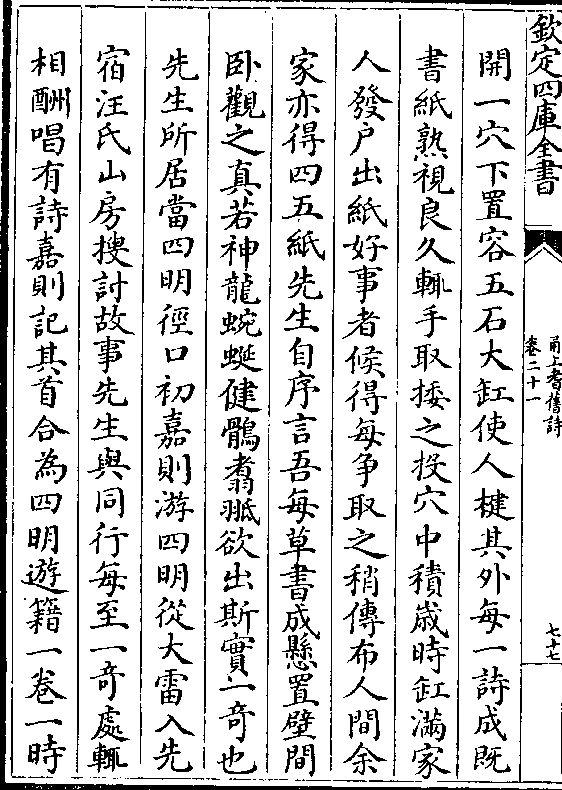 欽定四庫全書
甬上耆舊詩
卷二十一
七十七
開一穴下置容五石大缸使人楗其外每一詩成既
書紙熟視良久輒手取捼之投穴中積歲時缸滿家
人發户出紙好事者候得每争取之稍傳布人間余
家亦得四五紙先生自序言吾每草書成懸置壁間
卧觀之真若神龍蜿蜒健鶻翥翀欲出斯實一奇也
先生所居當四明徑口初嘉則游四明從大雷入先
宿汪氏山房搜討故事先生與同行每至一奇處輒
相酬唱有詩嘉則記其首合為四明遊籍一卷一時